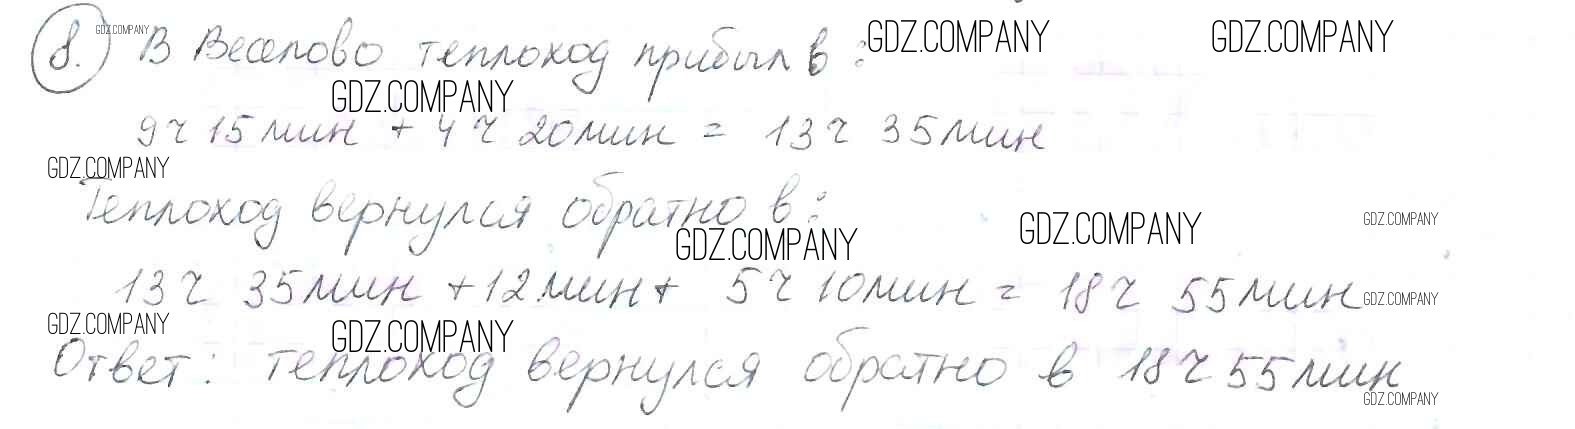 8. В Веселово теплоход прибыл в:
9ч 15мин + 4ч 20мин = 13ч 35мин
Теплоход вернулся обратно в:
13ч 35мин + 12мин + 5ч 10мин = 18ч 55мин
Ответ: теплоход вернулся обратно в 18ч 55мин
GDZ.COMPANY
GDZ.COMPANY
GDZ.COMPANY
GDZ.COMPANY
GDZ.COMPANY
GDZ.COMPANY
GDZ.COMPANY
GDZ.COMPANY
GDZ.COMPANY
GDZ.COMPANY
GDZ.COMPANY
GDZ.COMPANY